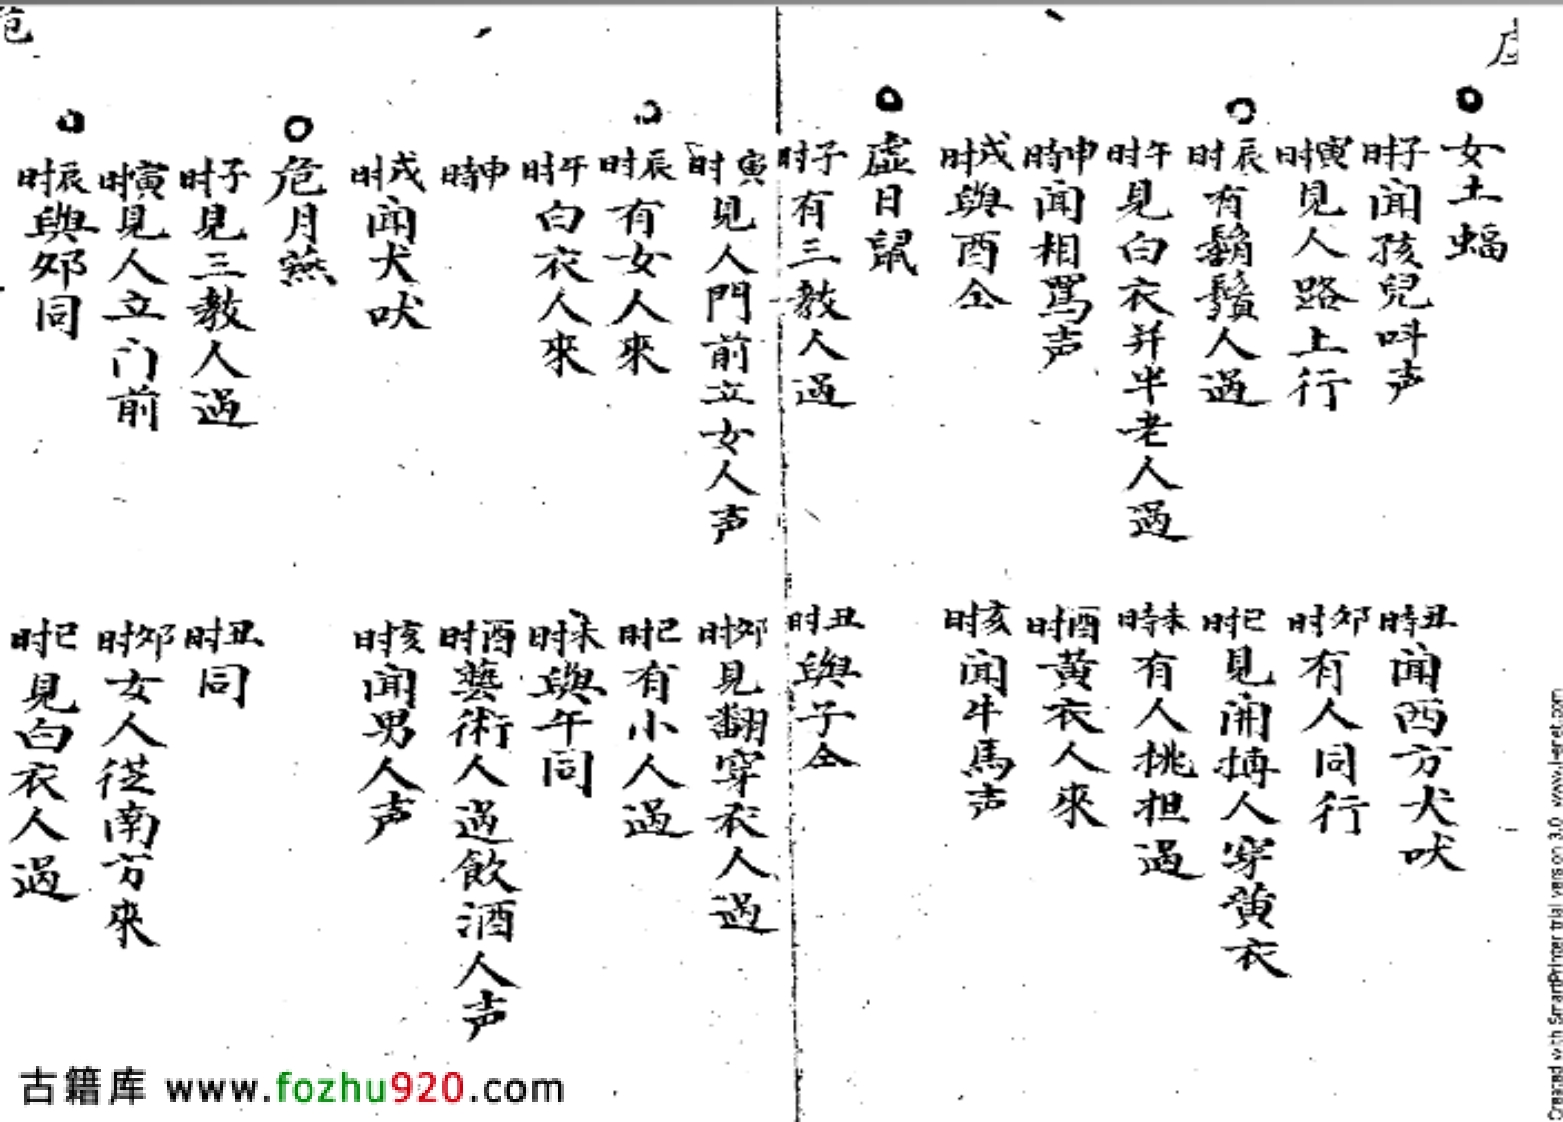 女土蝠
子时闻孩兒呌声
丑時闻西方犬吠
寅时見人路上行
卯时有人同行
辰时有鬍鬚人過
巳时見開搏人穿黄衣
午时見白衣并半老人過
未時有人挑担過
申時闻相罵声
酉时黃衣人來
戌时與酉仝
亥时闻牛馬声
虚日鼠
子时有三教人過
丑时與子仝
寅时見人門前立女人声
卯时見翻穿衣人過
辰时有女人來
巳时有小人過
午时白衣人來
未时與午同
申時
酉时藝術人過飲酒人声
戌时闻犬吠
亥时闻男人声
危月燕
子时見三教人過
丑时同
寅时見人立门前
卯时女人從南方來
辰时與卯同
巳时見白衣人過
古籍库 www.fozhu920.com